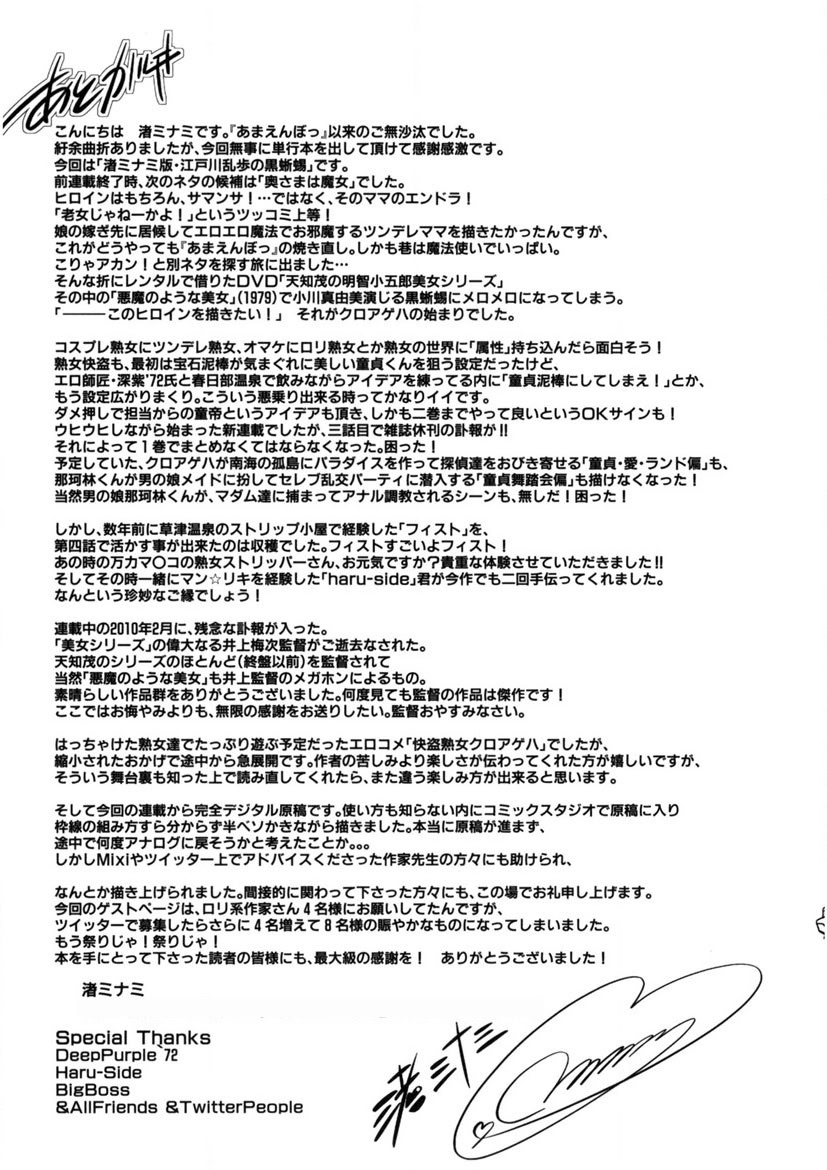 あとがき
こんにちは　渚ミナミです。『あまえんぼっ』以来のご無沙汰でした。
紆余曲折ありましたが、今回無事に単行本を出して頂けて感謝感激です。
今回は「渚ミナミ版・江戸川乱歩の黒蜥蜴」です。
前連載終了時、次のネタの候補は「奥さまは魔女」でした。
ヒロインはもちろん、サマンサ！…ではなく、そのママのエンドラ！
「老女じゃねーかよ！」というツッコミ上等！
娘の嫁ぎ先に居候してエロエロ魔法でお邪魔するツンデレママを描きたかったんですが、
これがどうやっても『あまえんぼっ』の焼き直し。しかも巷は魔法使いでいっぱい。
こりゃアカン！と別ネタを探す旅に出ました…
そんな折にレンタルで借りたDVD「天知茂の明智小五郎美女シリーズ」
その中の「悪魔のような美女」(1979)で小川真由美演じる黒蜥蜴にメロメロになってしまう。
「―――このヒロインを描きたい！」　それがクロアゲハの始まりでした。
コスプレ熟女にツンデレ熟女、オマケにロリ熟女とか熟女の世界に「属性」持ち込んだら面白そう！
熟女快盗も、最初は宝石泥棒が気まぐれに美しい童貞くんを狙う設定だったけど、
エロ師匠・深紫'72氏と春日部温泉で飲みながらアイデアを練ってる内に「童貞泥棒にしてしまえ！」とか、
もう設定広がりまくり。こういう悪乗り出来る時ってかなりイイです。
ダメ押しで担当からの童帝というアイデアも頂き、しかも二巻までやって良いというOKサインも！
ウヒウヒしながら始まった新連載でしたが、三話目で雑誌休刊の訃報が!!
それによって1巻でまとめなくてはならなくなった。困った！
予定していた、クロアゲハが南海の孤島にパラダイスを作って探偵達をおびき寄せる「童貞・愛・ランド偏」も、
那珂林くんが男の娘メイドに扮してセレブ乱交パーティに潜入する「童貞舞踏会偏」も描けなくなった！
当然男の娘那珂林くんが、マダム達に捕まってアナル調教されるシーンも、無しだ！困った！
しかし、数年前に草津温泉のストリップ小屋で経験した「フィスト」を、
第四話で活かす事が出来たのは収穫でした。フィストすごいよフィスト！
あの時の万カマ〇コの熟女ストリッパーさん、お元気ですか？貴重な体験させていただきました!!
そしてその時一緒にマン☆リキを経験した「haru-side」君が今作でも二回手伝ってくれました。
なんという珍妙なご縁でしょう！
連載中の2010年2月に、残念な訃報が入った。
「美女シリーズ」の偉大なる井上梅次監督がご逝去なされた。
天知茂のシリーズのほとんど(終盤以前)を監督されて
当然「悪魔のような美女」も井上監督のメガホンによるもの。
素晴らしい作品群をありがとうございました。何度見ても監督の作品は傑作です！
ここではお悔やみよりも、無限の感謝をお送りしたい。監督おやすみなさい。
はっちゃけた熟女達でたっぷり遊ぶ予定だったエロコメ「快盗熟女クロアゲハ」でしたが、
縮小されたおかげで途中から急展開です。作者の苦しみより楽しさが伝わってくれた方が嬉しいですが、
そういう舞台裏も知った上で読み直してくれたら、また違う楽しみ方が出来ると思います。
そして今回の連載から完全デジタル原稿です。使い方も知らない内にコミックスタジオで原稿に入り
枠線の組み方すら分からず半ベソかきながら描きました。本当に原稿が進まず、
途中で何度アナログに戻そうかと考えたことか。。。
しかしMixiやツイッター上でアドバイスくださった作家先生の方々にも助けられ、
なんとか描き上げられました。間接的に関わって下さった方々にも、この場でお礼申し上げます。
今回のゲストページは、ロリ系作家さん4名様にお願いしてたんですが、
ツイッターで募集したらさらに4名増えて8名様の賑やかなものになってしまいました。
もう祭りじゃ！祭りじゃ！
本を手にとって下さった読者の皆様にも、最大級の感謝を！　ありがとうございました！
渚ミナミ
Special Thanks
DeepPurple '72
Haru-Side
BigBoss
&AllFriends &TwitterPeople
渚ミナミ